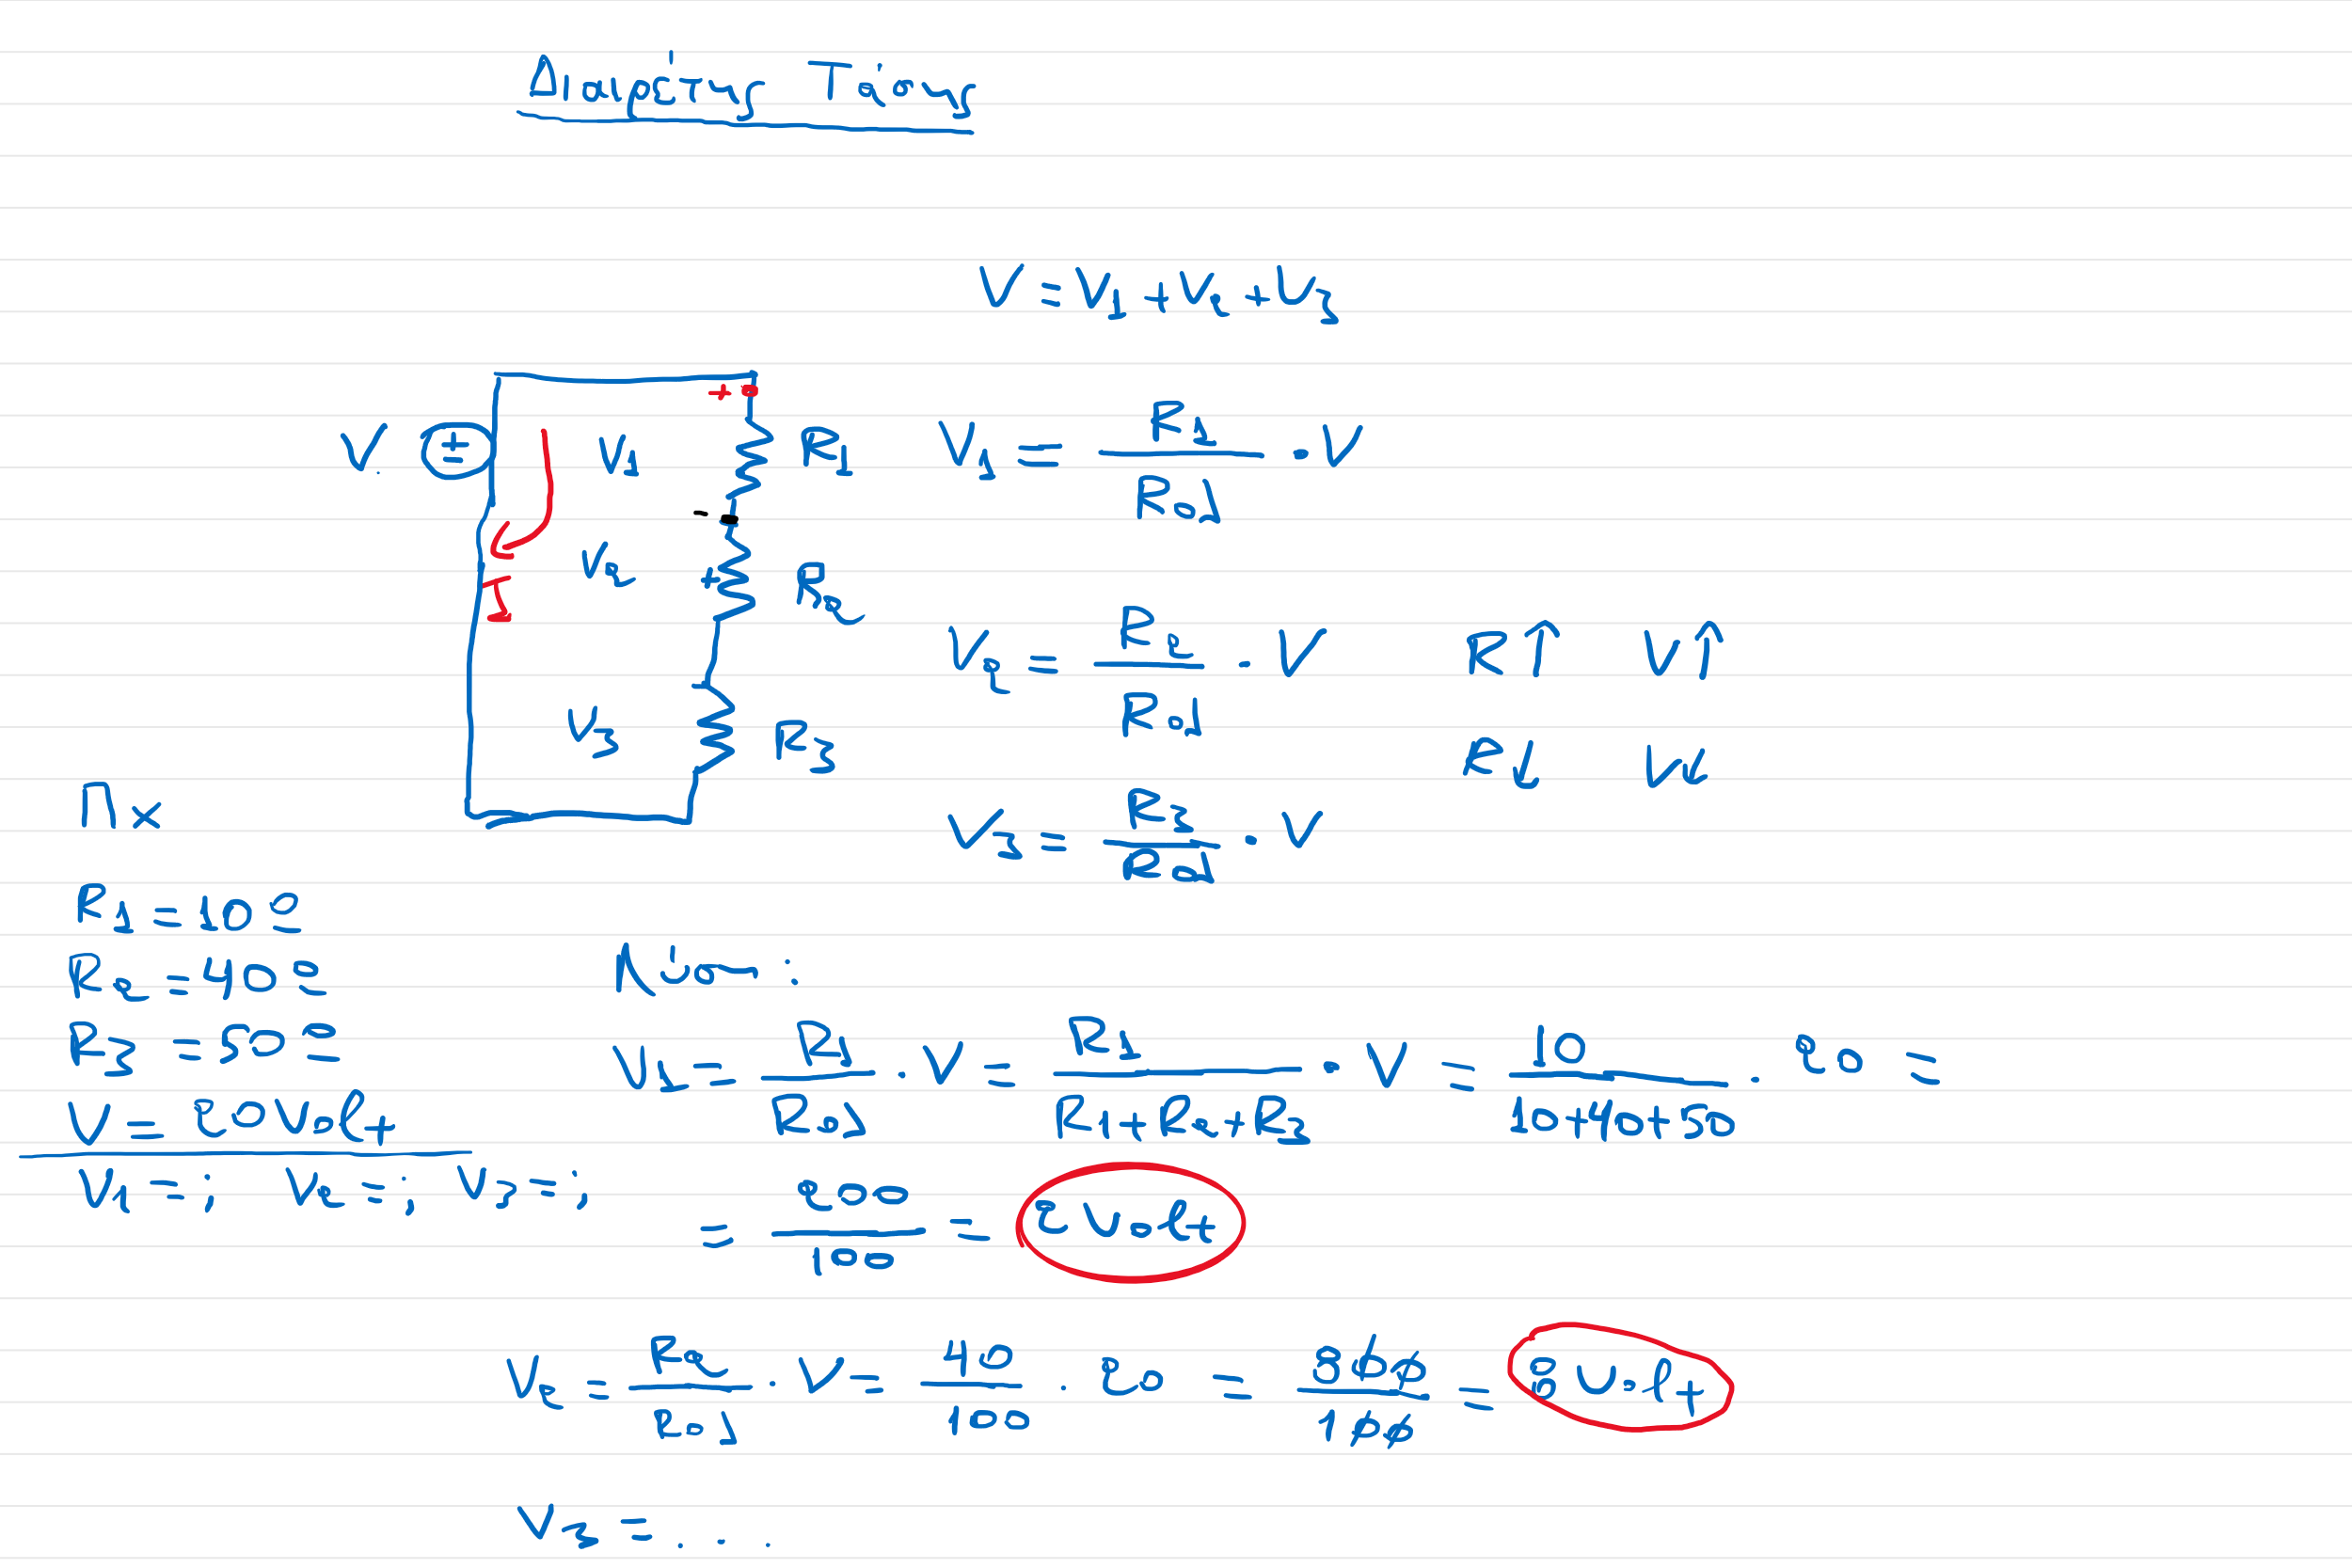 Διαιρέτης Τάσης
V = V1 + V2 + V3
V + - V1 R1 + -
V1 = R1 / Rολ · V
I V2 + R2
V2 = R2 / Rολ · V R↑ V↑
V3 R3 R↓ V↓
Πχ
V3 = R3 / Rολ · V
R1 = 10Ω
R2 = 40Ω
R3 = 50Ω
V = 20Volt
V1 = ; V2 = ; V3 = ;
Λύση :
V1 = R1 / Rολ · V = R1 / R1+R2+R3 · V = 10 / 10+40+50 · 20 =
= 200 / 100 = 2 Volt
V2 = R2 / Rολ · V = 40 / 100 · 20 = 800 / 100 = 8 Volt
V3 = . . .